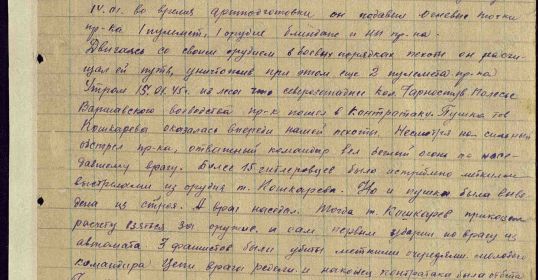 14.01. во время артподготовки он подавил огневые точки
пр-ка 1 пулемет, 1 орудие блиндаж и НП пр-ка.
Двигаясь со своим орудием в боевых порядках пехоты он расчи-
щал ей путь, уничтожив при этом еще 2 пулемета пр-ка
Утром 15.01.45г. из леса что северозападнее
Варшавского воеводства пр-к пошел в контратаку. Пушка тов
Кошкарева оказалась впереди нашей пехоты. Несмотря на сильный
обстрел пр-ка, отважный командир вел беглый огонь по насе-
давшему врагу. Более 15 гитлеровцев было истреблено меткими
выстрелами из орудия т. Кошкарева. Но и пушка была выве-
дена из строя. А враг наседал. Тогда т. Кошкарев приказал
расчету взяться за оружие, и сам первым ударил по врагу из
автомата. 3 фашистов были убиты меткими очередями смелого
командира Цепи врага редели и наконец контратака была отбита